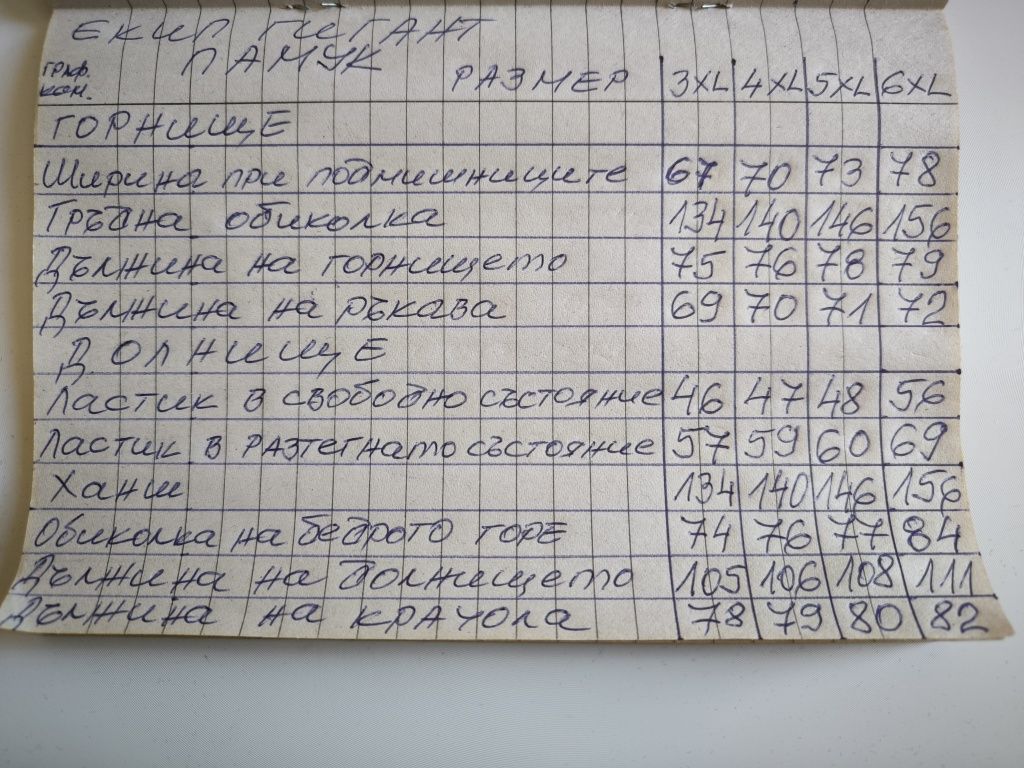 ЕКИП ГИГАНТ
ПАМУК
ГРАФ.
КОМ.
РАЗМЕР 3XL 4XL 5XL 6XL
ГОРНИЩЕ
Ширина при подмишниците 67 70 73 78
Гръдна обиколка 134 140 146 156
Дължина на горнището 75 76 78 79
Дължина на ръкава 69 70 71 72
ДОЛНИЩЕ
Ластик в свободно състояние 46 47 48 56
Ластик в разтегнато състояние 57 59 60 69
Ханш 134 140 146 156
Обиколка на бедрото горе 74 76 77 84
Дължина на долнището 105 106 108 111
Дължина на крачола 78 79 80 82